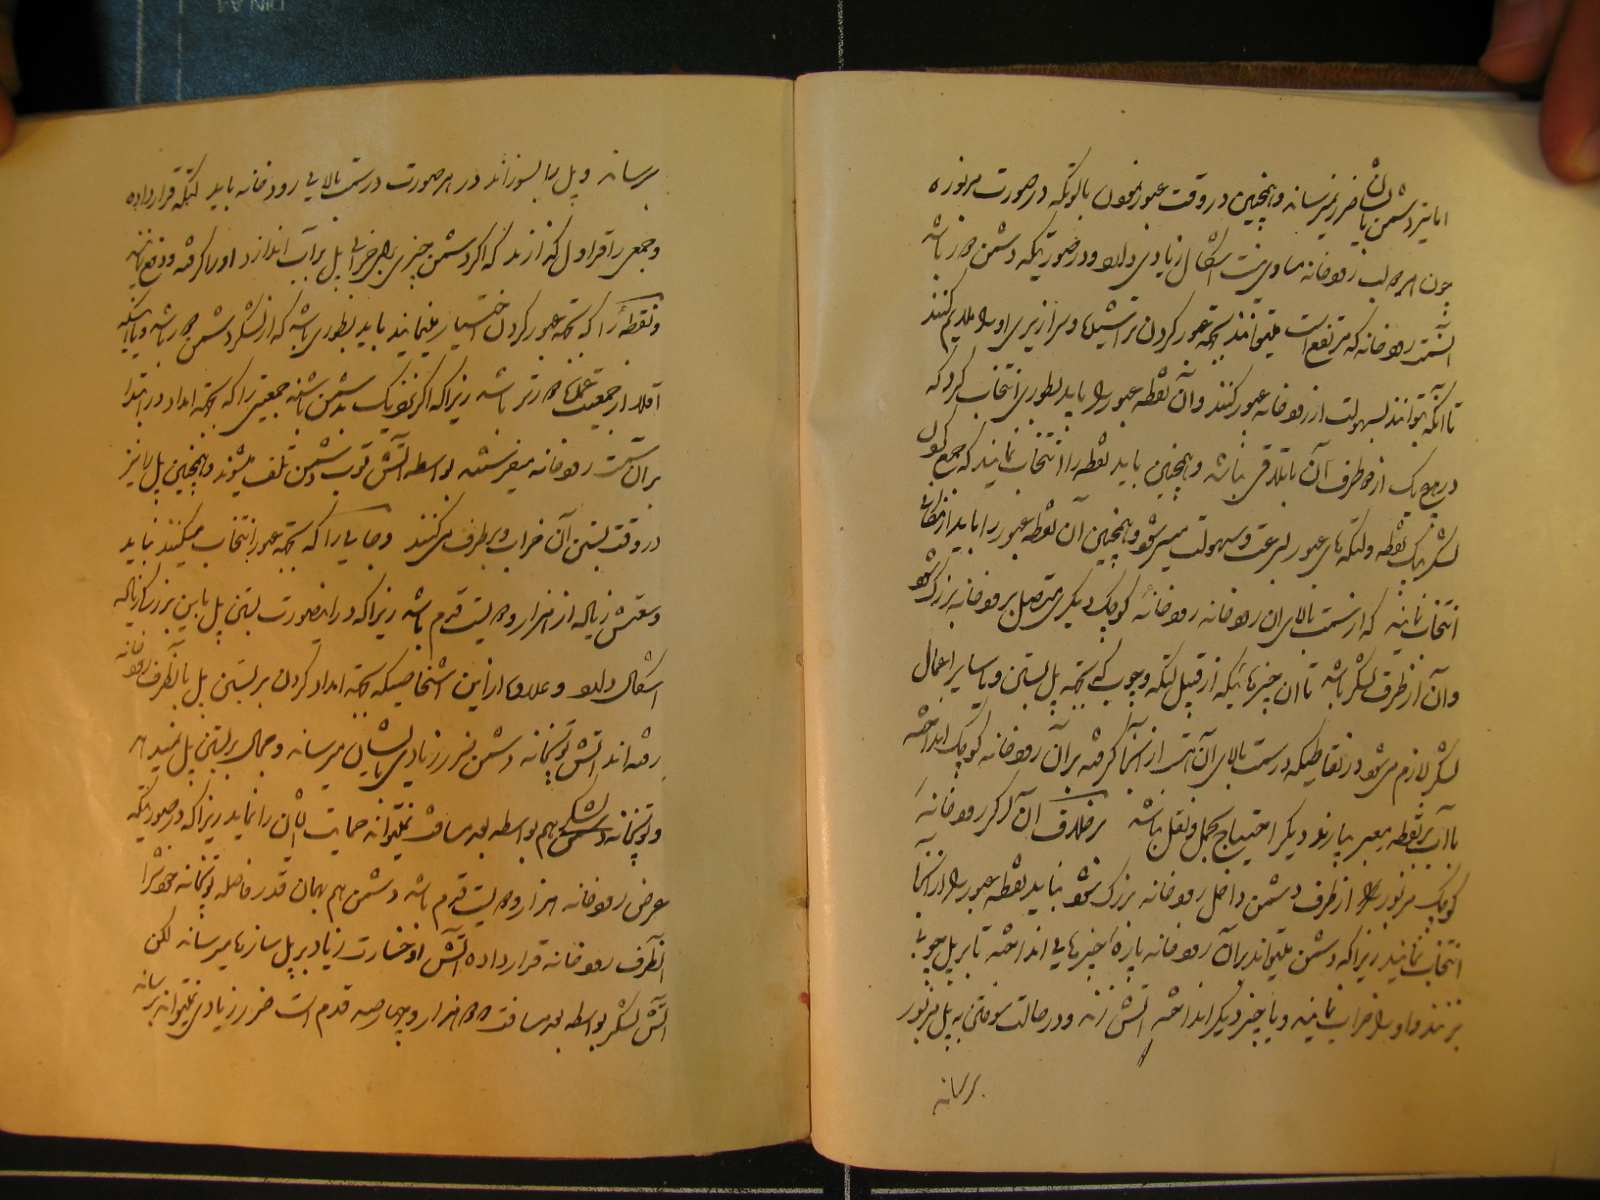 اما تیر دشمن بایشان ضرر نمیرسانه و همچنین در وقت عبور نمودن بالوتکه در صورت مزبوره
چون هر دو لب رودخانه مساوی نیست اشکال زیادی دارد و در صورتیکه دشمن دور باشه
آنسمت رودخانه که مرتفع است میتوانند بجهة عبور کردن تراشیها و سرازیری او را ملایم کنند
تا آنکه بتوانند بسهولت از رودخانه عبور کنند و آن نقطه عبور را باید بطوری انتخاب کرد که
در هیچ یک از دو طرف آن باتلاقی نباشه و همچنین باید نقطه را انتخاب نمایند که جمع کردن
لشکر بیک نقطه و لتکه های عبور بسرعت و سهولت میسر شود و همچنین آن نقطه عبور را باید از مکانی
انتخاب نماینه که از سمت بالای ان رودخانه رودخانهٔ کوچک دیگری متصل برودخانه بزرگ شود
و آن از طرف لشکر باشه تا ان چیزهائیکه از قبیل لتکه و چوب که بجهة پل بستن و یا سایر اعمال
لشکر لازم میشود در نقاطیکه در سمت بالای آن است از آنجا گرفته بر آن رودخانه کوچک انداخته
با آب بر نقطه معبر بیارند و دیگر احتیاج بحمل و نقل نباشه برخلاف ان اگر رودخانهٔ
کوچک مزبور از طرف دشمن داخل رودخانه بزرگ شود نباید نقطه عبور را از آنجا
انتخاب نمایند زیرا که دشمن میتواند بر آن رودخانه پارهٔ چیزهایی انداخته تا بر پل چوبها
بزنند و او را خراب نماینه و یا چیز دیگر انداخته آتش زنه و در حالت سوختن به پل مزبور
برسانه
برسانه و پل را بسوزاند در هر صورت در سمت بالایی رودخانه باید لتکه قرار داده
و جمعی را قراول گذارند که اگر دشمن چیزی برای خرابی پل بر آب اندازد او را گرفته و دفع نماینه
و نقطهٔ را که بجهة عبور کردن اختیار مینمایند باید بطوری باشه که از لشکر دشمن دور باشه و یا اینکه
اقلا از جمعیت عملها دورتر باشه زیرا که اگر نزدیک بدشمن باشنه جمعیتی را که بجهة امداد در ابتدا
بر آن سمت رودخانه میفرستنه بواسطه آتش توپ دشمن تلف میشوند و همچنین پل را نیز
در وقت بستن آن خراب و برطرف میکنند و جایی را که بجهة عبور انتخاب میکنند نباید
وسعتش زیاده از هزار و دویست قدم باشه زیرا که در اینصورت بستن پل باین بزرگی زیاده
اشکال دارد و علاوه از این اشخاصیکه بجهة امداد کردن بر بستن پل بآنطرف رودخانه
رفته اند آتش توپخانه دشمن ضرر زیادی بایشان میرسانه و مجال بر بستن پل نمیدهه
و توپخانه لشکر هم بواسطه بعد مسافت نمیتوانه حمایت ایشان را نماید زیرا که در صورتیکه
عرض رودخانه هزار و دویست قدم باشه دشمن هم بهمان قدر فاصله توپخانه خود را
آنطرف رودخانه قرار داده آتش او خسارت زیاد بر پل سازها میرسانه لکن
آتش لشکر بواسطه بعد مسافت دو هزار و چهار صد قدم است ضرر زیادی نمیتوانه برسانه